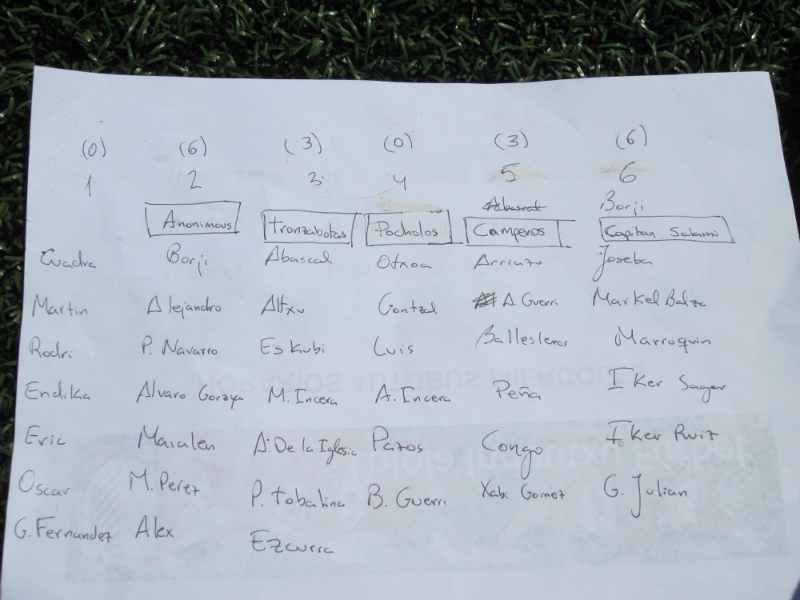 (0) (6) (3) (0) (3) (6)
1 2 3 4 5 6
Abascal Borji
Anonimous Tronzabotas Pocholos Camperos Capitan Salami
Cuadra Borji Abascal Otxoa Arriazu Joseba
Martin Alejandro Altxu Gontzal A. Guerri Markel Balza
Rodri P. Navarro Eskubi Luis Ballesteros Marroquin
Endika Alvaro Goraya M. Incera A. Incera Peña Iker Sager
Eric Maialen A. De la Iglesia Pazos Congo Iker Ruiz
Oscar M. Perez P. Tobalina B. Guerri Xab. Gomez G. Julian
G. Fernandez Alex Ezcurra
HORARIOS AUTOBUS MIERCOLES